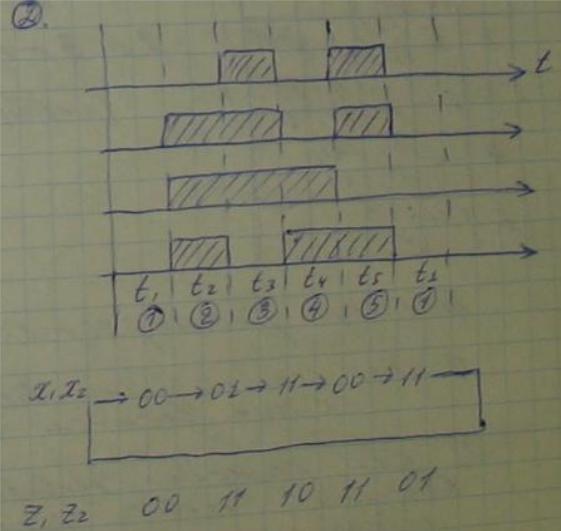 2.
t
t₁ t₂ t₃ t₄ t₅ t₁
① ② ③ ④ ⑤ ①
x₁x₂ → 00 → 01 → 11 → 00 → 11
z₁z₂ 00 11 10 11 01